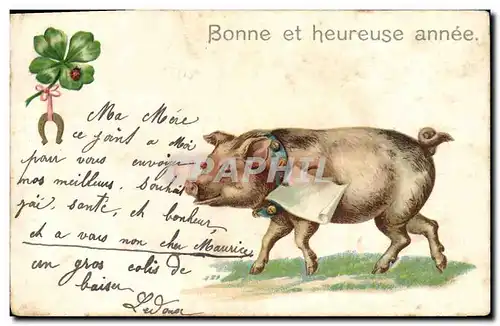 Bonne et heureuse année.
Ma Mère
ce joint a Moi
pour vous envoyer
nos meilleurs. Souhait
joi, santé, et bonheur,
et a vous mon cher Maurice,
un gros colis de
baiser